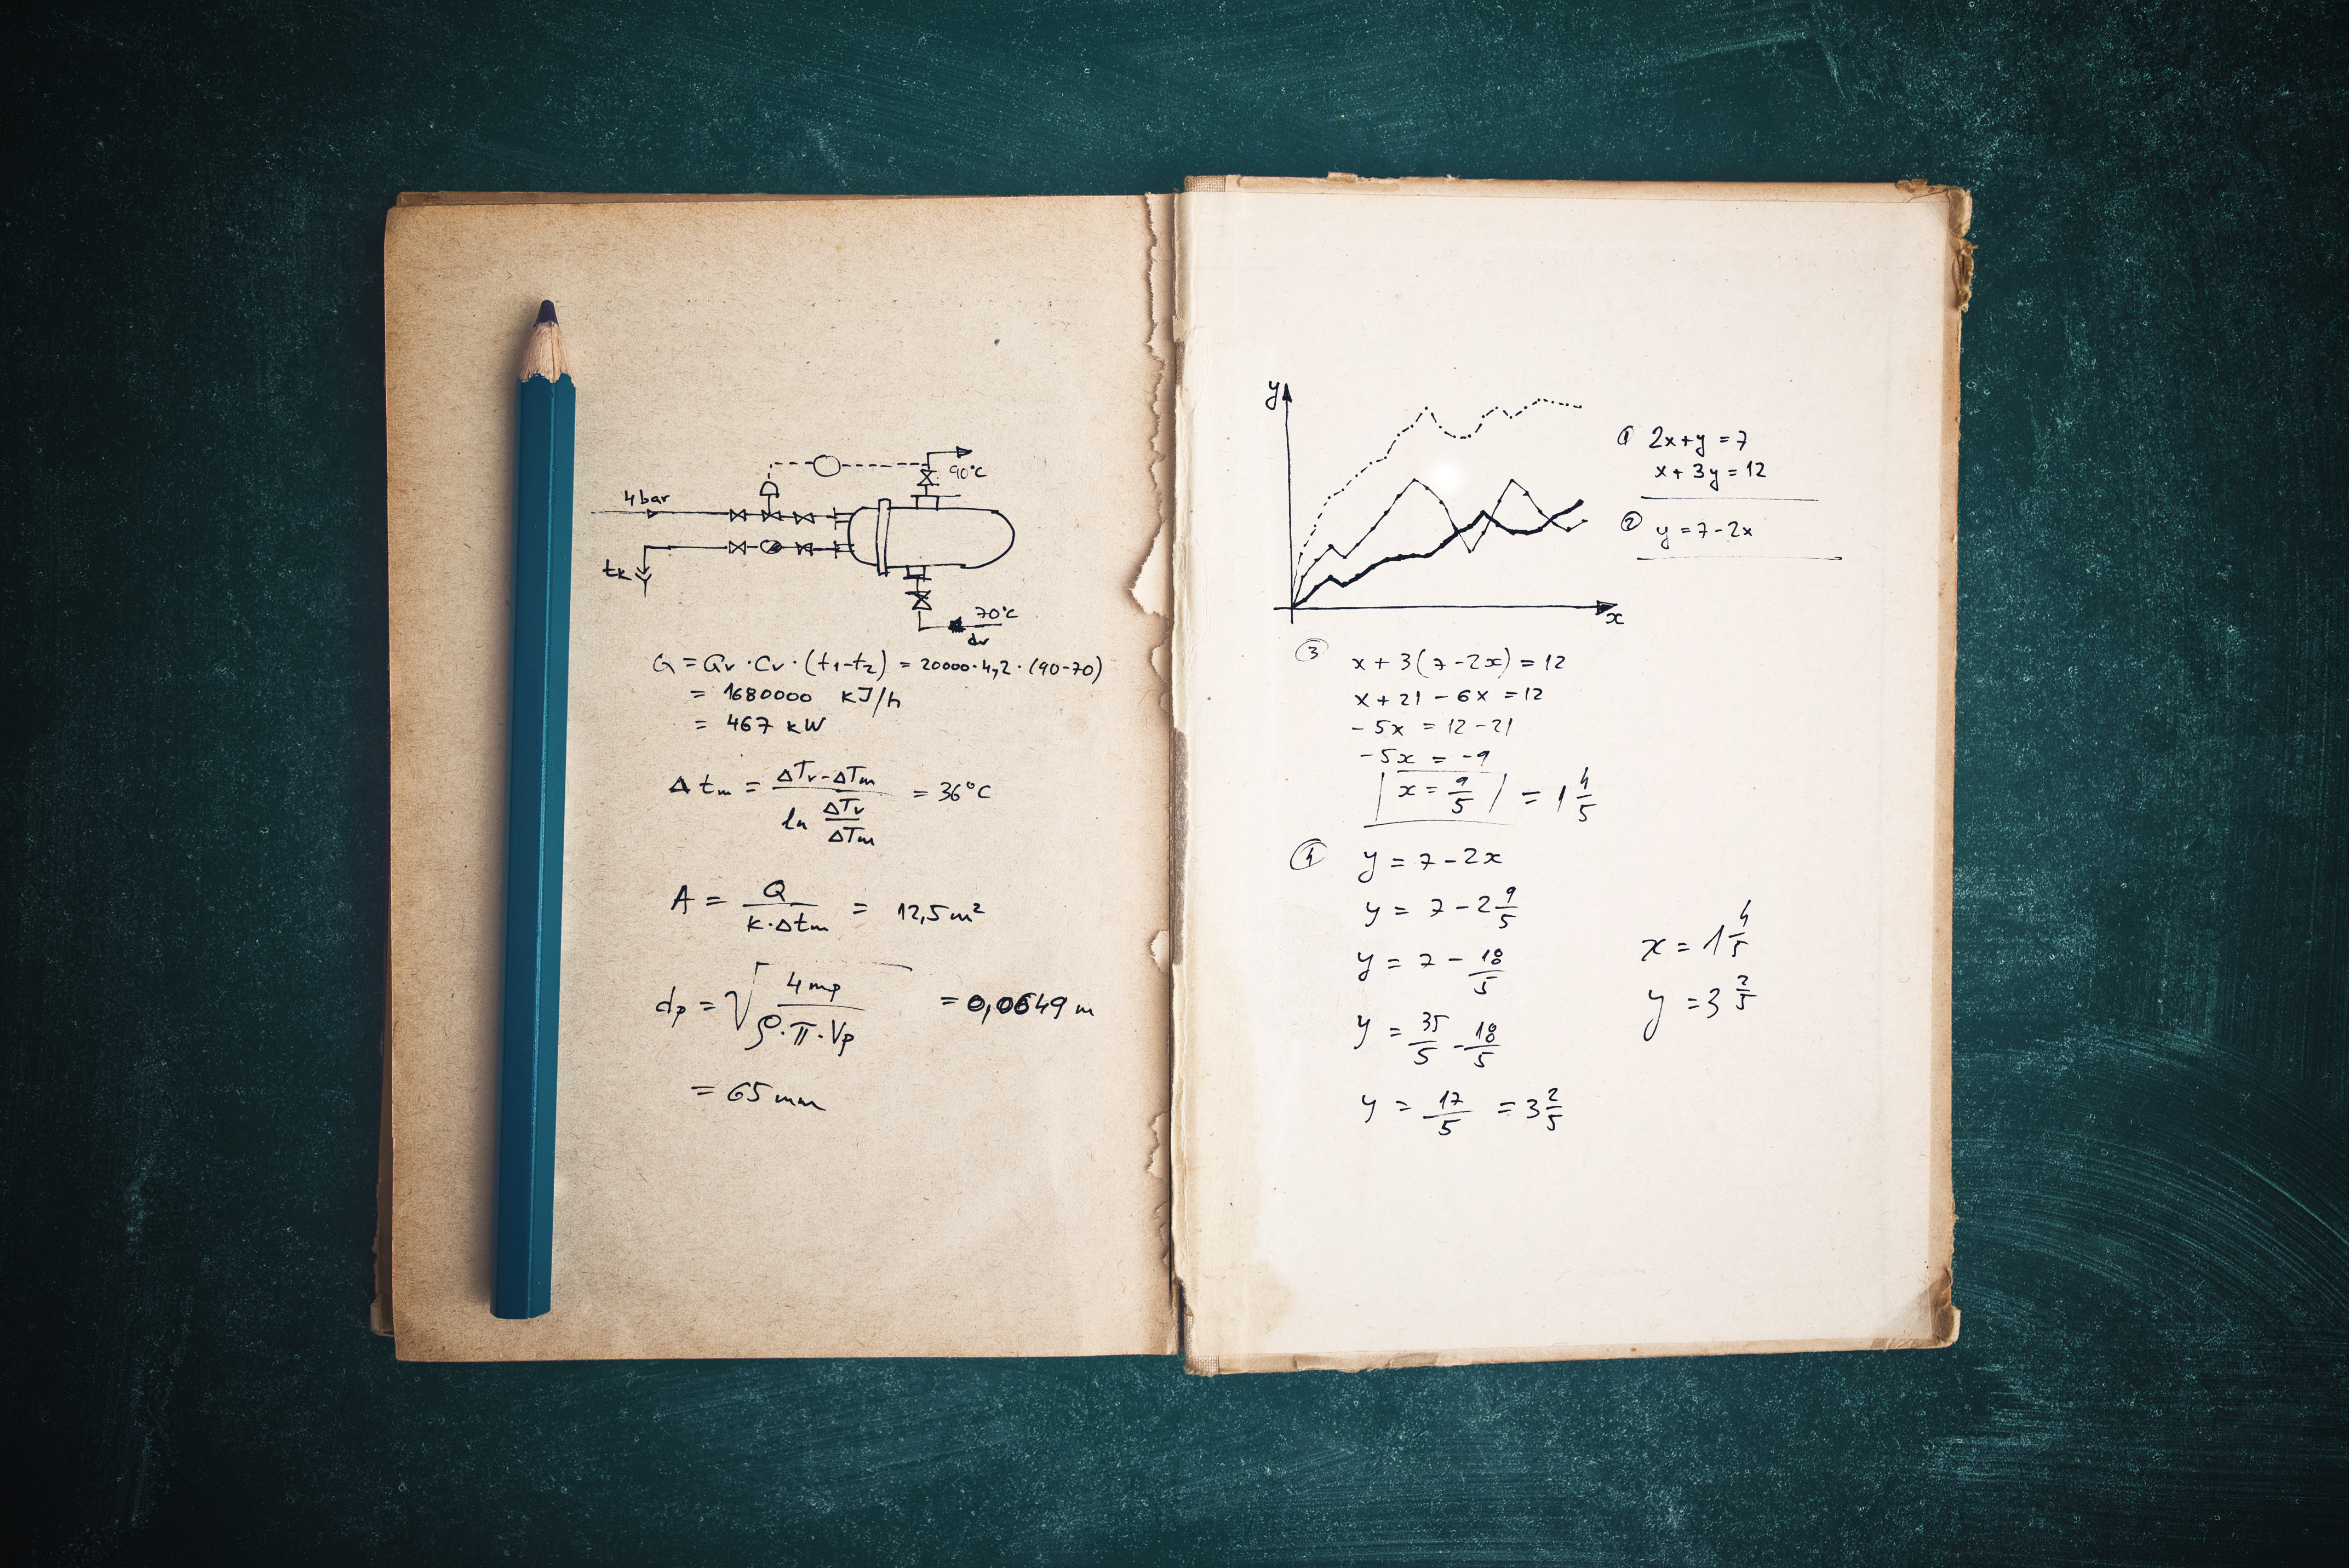 4 bar
90°C
tk
70°C
dv
Q = Qv · Cv · (t1-t2) = 20000·4,2·(90-70)
= 1680000 kJ/h
= 467 kW
Δtm = (ΔTv-ΔTm)/(ln ΔTv/ΔTm) = 36°C
A = Q/(k·Δtm) = 12,5 m²
dp = √(4mp/(ρ·π·Vp)) = 0,0649 m
= 65 mm
y
x
① 2x+y = 7
x + 3y = 12
② y = 7-2x
③ x + 3(7-2x) = 12
x + 21 - 6x = 12
- 5x = 12-21
- 5x = -9
x = 9/5 = 1 4/5
④ y = 7-2x
y = 7-2 9/5
y = 7 - 18/5
y = 35/5 - 18/5
y = 17/5 = 3 2/5
x = 1 4/5
y = 3 2/5